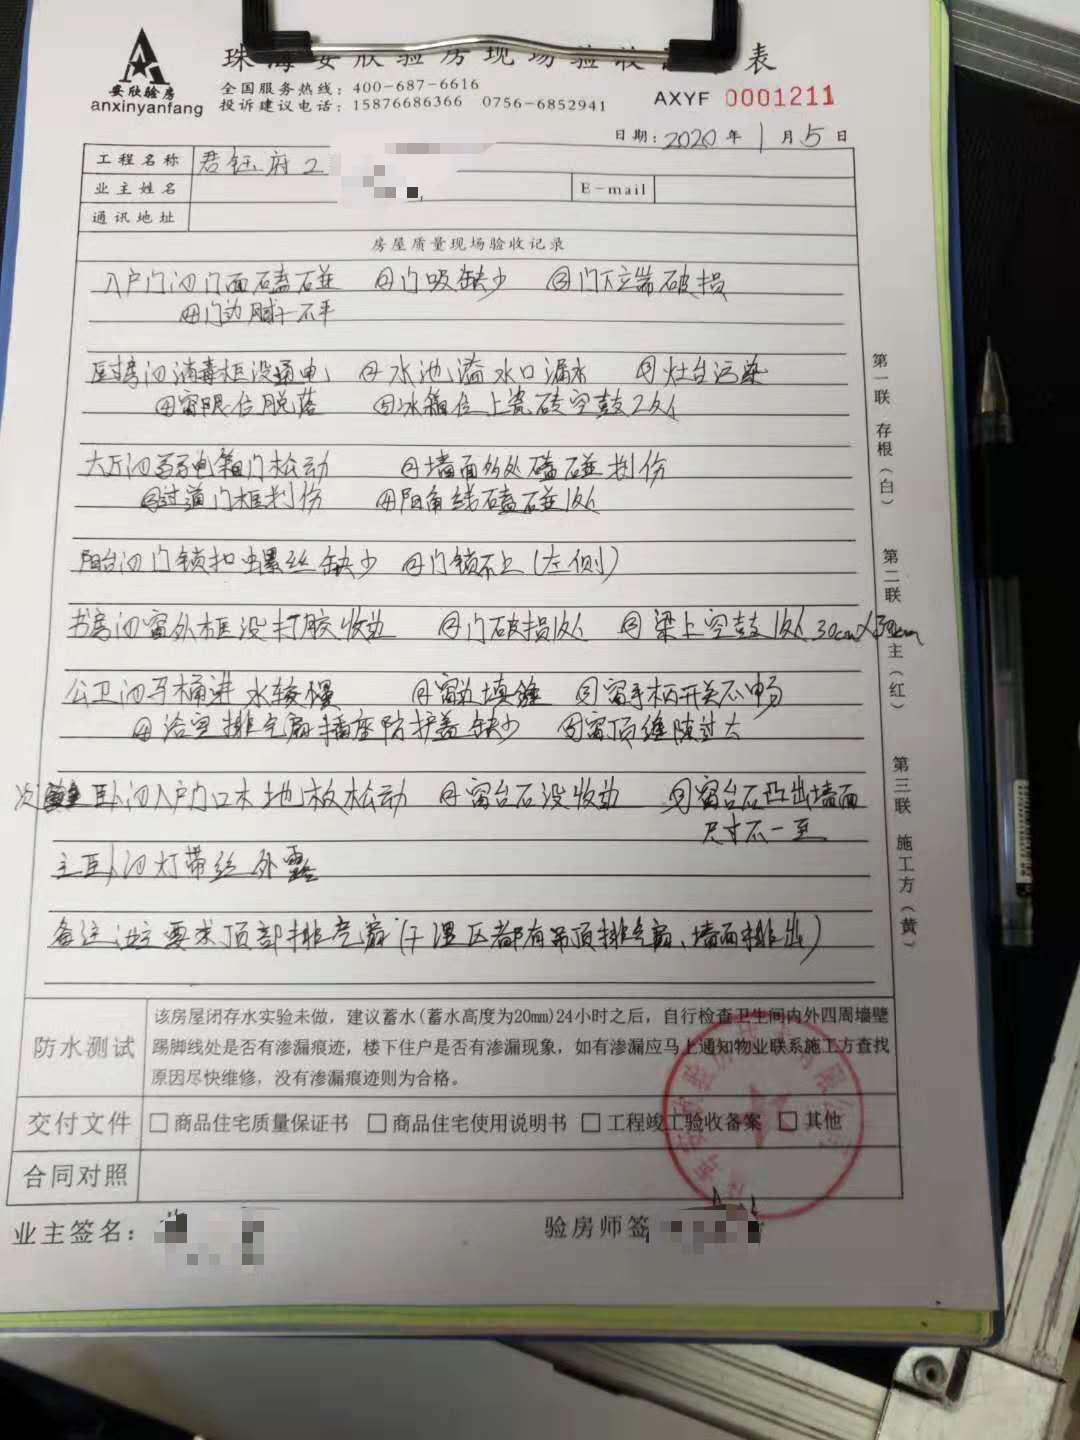 安欣验房
anxinyanfang
珠海安欣验房现场验收 表
全国服务热线：400-687-6616
投诉建议电话：15876686366 0756-6852941
AXYF 0001211
日期：2020年1月5日
工程名称 君钰府2
业主姓名 E-mail
通讯地址
房屋质量现场验收记录
入户门①门面磕碰 ②门吸缺少 ③门下立端破损
④门边腻子不平
厨房①消毒柜没通电 ②水池溢水口漏水 ③灶台污染
④窗限位脱落 ⑤冰箱位上瓷砖空鼓2处
大厅①弱电箱门松动 ②墙面多处磕碰划伤
③过道门框划伤 ④阳角线磕碰1处
阳台①门锁扣螺丝缺少 ②门锁不上(左侧)
书房①窗外框没打胶收边 ②门破损1处 ③梁上空鼓1处 30cm×30cm
公卫①马桶进水较慢 ②窗边填缝 ③窗手柄开关不畅
④浴室排气扇插座防护盖缺少 ⑤窗顶缝隙过大
次卧①入户门口木地板松动 ②窗台石没收边 ③窗台石凸出墙面
尺寸不一致
主卧①灯带丝外露
备注：业主要求顶部排气扇(干湿区都有吊顶排气扇、墙面排出)
防水测试
该房屋闭存水实验未做，建议蓄水(蓄水高度为20mm)24小时之后，自行检查卫生间内外四周墙壁
踢脚线处是否有渗漏痕迹，楼下住户是否有渗漏现象，如有渗漏应马上通知物业联系施工方查找
原因尽快维修，没有渗漏痕迹则为合格。
交付文件 □商品住宅质量保证书 □商品住宅使用说明书 □工程竣工验收备案 □其他
合同对照
业主签名： 验房师签
第一联 存根（白）
第二联 主（红）
第三联 施工方（黄）